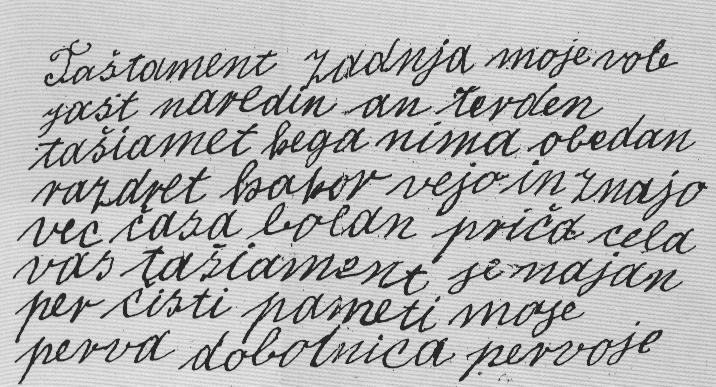 Taštament zadnja moje vole
jašt naredin an terden
tašiamet kega nima obedan
razdret kakor vejo in znajo
vec časa bolan priča cela
vas tašiament je najan
per cisti pameti moje
perva dobotnica pervoje